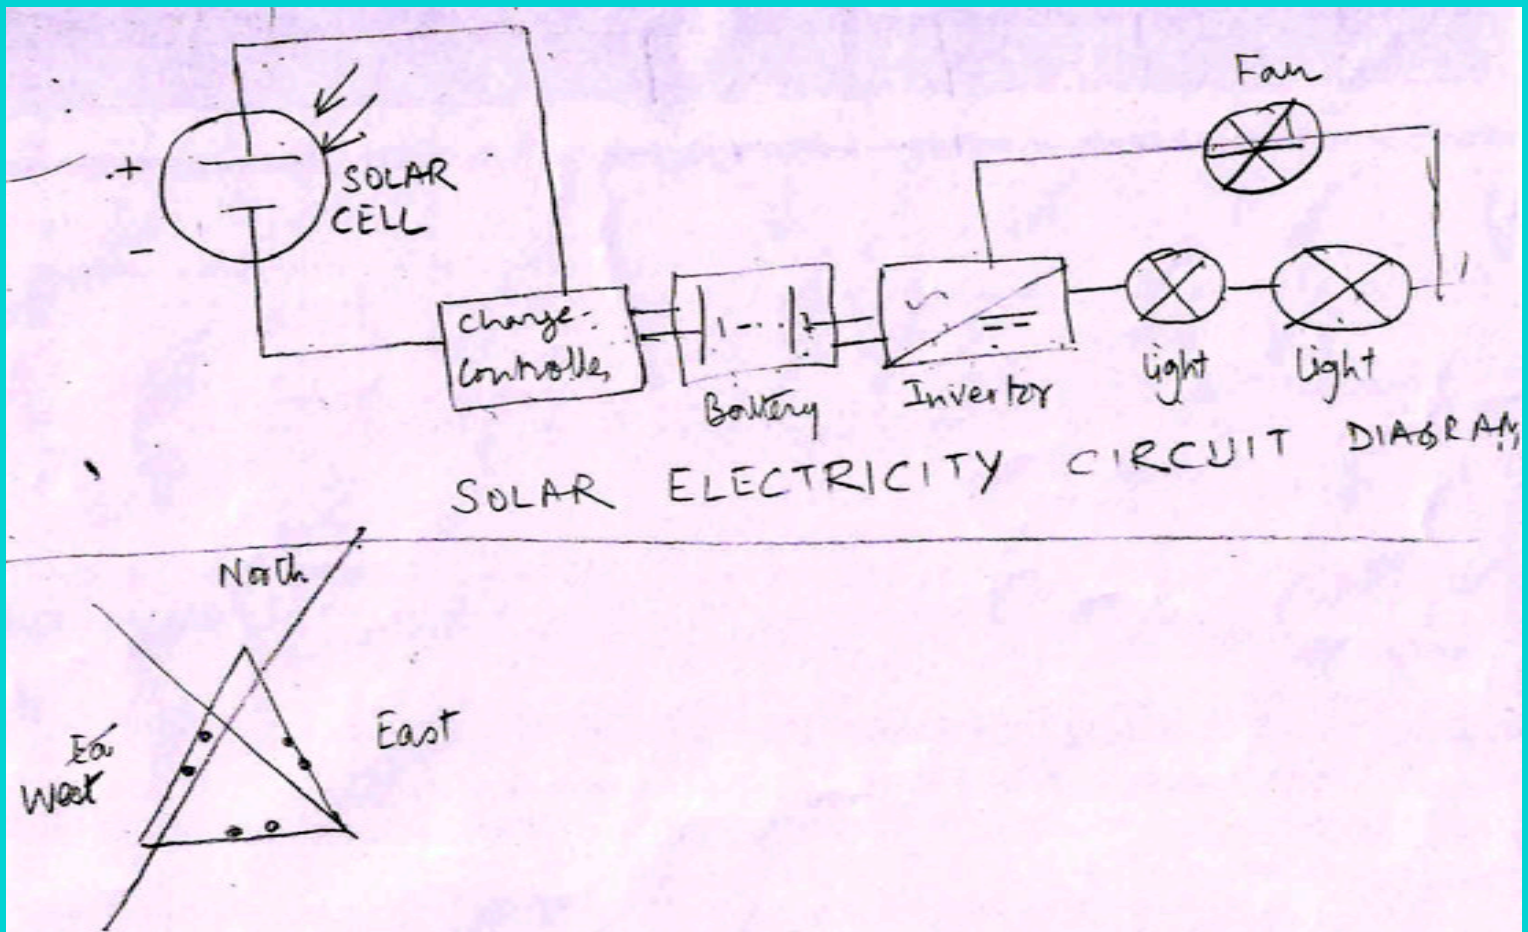 Fan
+
SOLAR
CELL
-
Charge-
Controller
Battery
Invertor
Light
Light
SOLAR ELECTRICITY CIRCUIT DIAGRAM
North
Ea
West
East